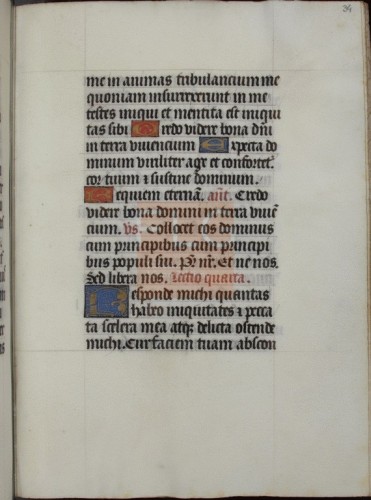 39
me in animas tribulancium me
quoniam insurrexerunt in me
testes iniqui et mentita est iniqui
tas sibi Credo videre bona dñi
in terra viuencium Expecta do
minum viriliter age et confortet᷒
cor tuum ⁊ sustine dominum.
Requiem eternã. añt. Credo
videre bona domini in terra viuē
cium. v̄s. Collocet eos dominus
cum principibus cum principi
bus populi sui. Pr̄ nr̄. Et ne nos.
Sed libera nos. Lectio quarta.
Responde michi quantas
habeo iniquitates ⁊ pecca
ta scelera mea atqȝ delicta ostende
michi. Cur faciem tuam abscon